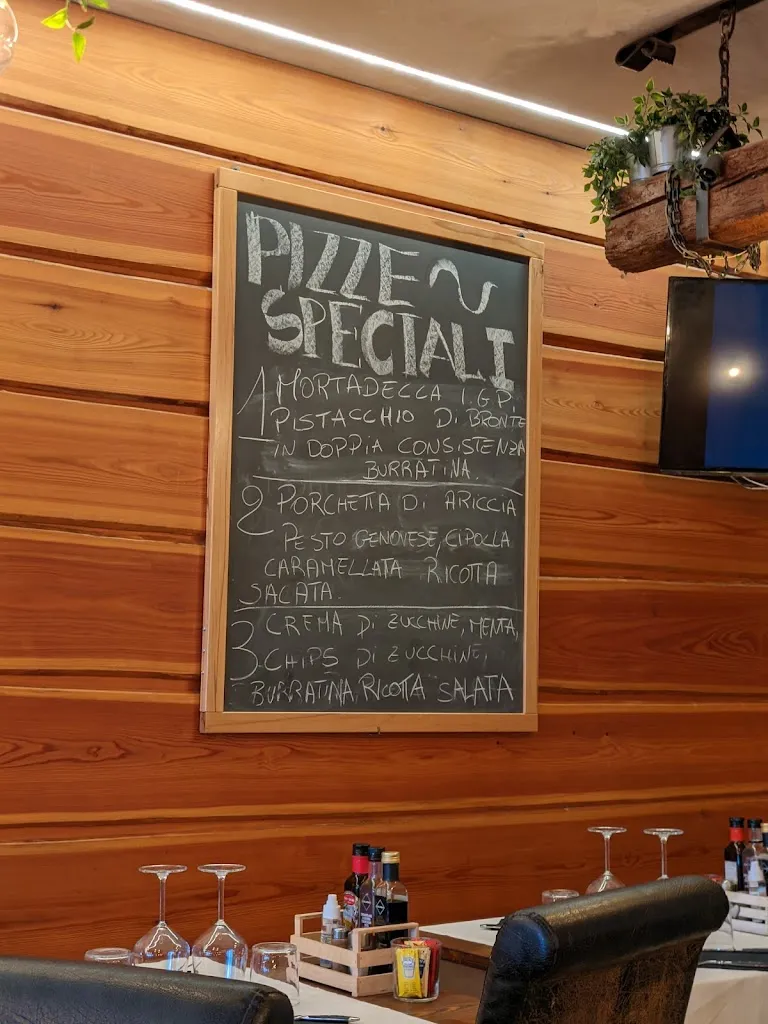 PIZZE ~
SPECIALI
1 MORTADELLA I.G.P.
PISTACCHIO DI BRONTE
IN DOPPIA CONSISTENZA
BURRATINA.
2 PORCHETTA DI ARICCIA
PESTO GENOVESE, CIPOLLA
CARAMELLATA RICOTTA
SALATA.
3 CREMA DI ZUCCHINE, MENTA,
CHIPS DI ZUCCHINE,
BURRATINA, RICOTTA SALATA